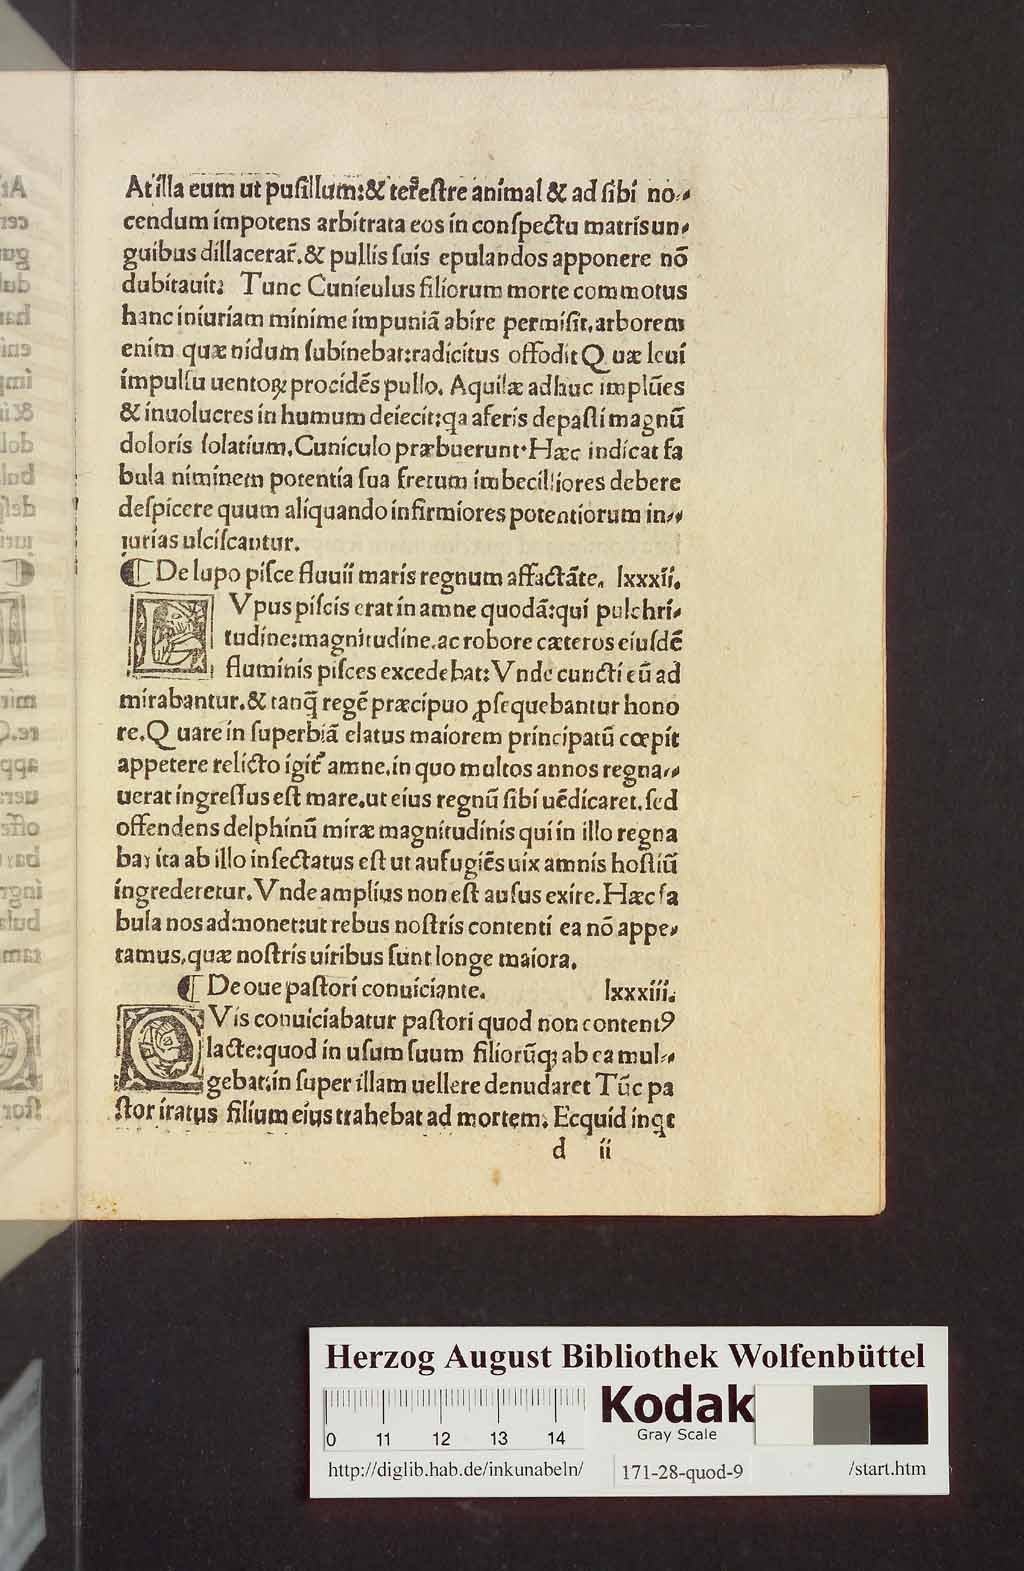 At illa eum ut puſillum:& terreſtre animal & ad ſibi no⸗
cendum impotens arbitrata eos in conſpectu matris un⸗
guibus dillacerar̃.& pullis ſuis epulandos apponere nõ
dubitauit: Tunc Cunieulus filiorum morte commotus
hanc iniuriam minime impuniã abire permiſit.arborem
enim quæ nidum ſubinebat:radicitus offodit Quæ leui
impulſu uentoꝝ procidẽs pullo. Aquilæ adhuc implũes
& inuolucres in humum deiecit:qa aferis depaſti magnũ
doloris ſolatium.Cuniculo præbuerunt·Hæc indicat fa
bula niminem potentia ſua fretum imbecilliores debere
deſpicere quum aliquando infirmiores potentiorum in⸗
iurias ulciſcantur.
¶ De lupo piſce fluuii maris regnum affactãte. lxxxii.
LVpus piſcis erat in amne quodã:qui pulchri⸗
tudine:magnitudine.ac robore cæteros eiuſdẽ
fluminis piſces excedebat: Vnde cuncti eũ ad
mirabantur.& tanq̃ regẽ præcipuo ꝓſequebantur hono
re.Quare in ſuperbiã elatus maiorem principatũ cœpit
appetere relicto igit᷑ amne.in quo multos annos regna⸗
uerat ingreſſus eſt mare.ut eius regnũ ſibi uẽdicaret.ſed
offendens delphinũ miræ magnitudinis qui in illo regna
bat ita ab illo inſectatus eſt ut aufugiẽs uix amnis hoſtiũ
ingrederetur.Vnde amplius non eſt auſus exire.Hæc fa
bula nos admonet:ut rebus noſtris contenti ea nõ appe⸗
tamus,quæ noſtris uiribus ſunt longe maiora.
¶ De oue paſtori conuiciante. lxxxiii.
OVis conuiciabatur paſtori quod non contentꝰ
lacte:quod in uſum ſuum filiorũqꝫ ab ea mul⸗
gebat:in ſuper illam uellere denudaret Tũc pa
ſtor iratus filium eius trahebat ad mortem. Ecquid inqt
d ii
Herzog August Bibliothek Wolfenbüttel
Kodak
Gray Scale
0 11 12 13 14
http://diglib.hab.de/inkunabeln/ 171-28-quod-9 /start.htm